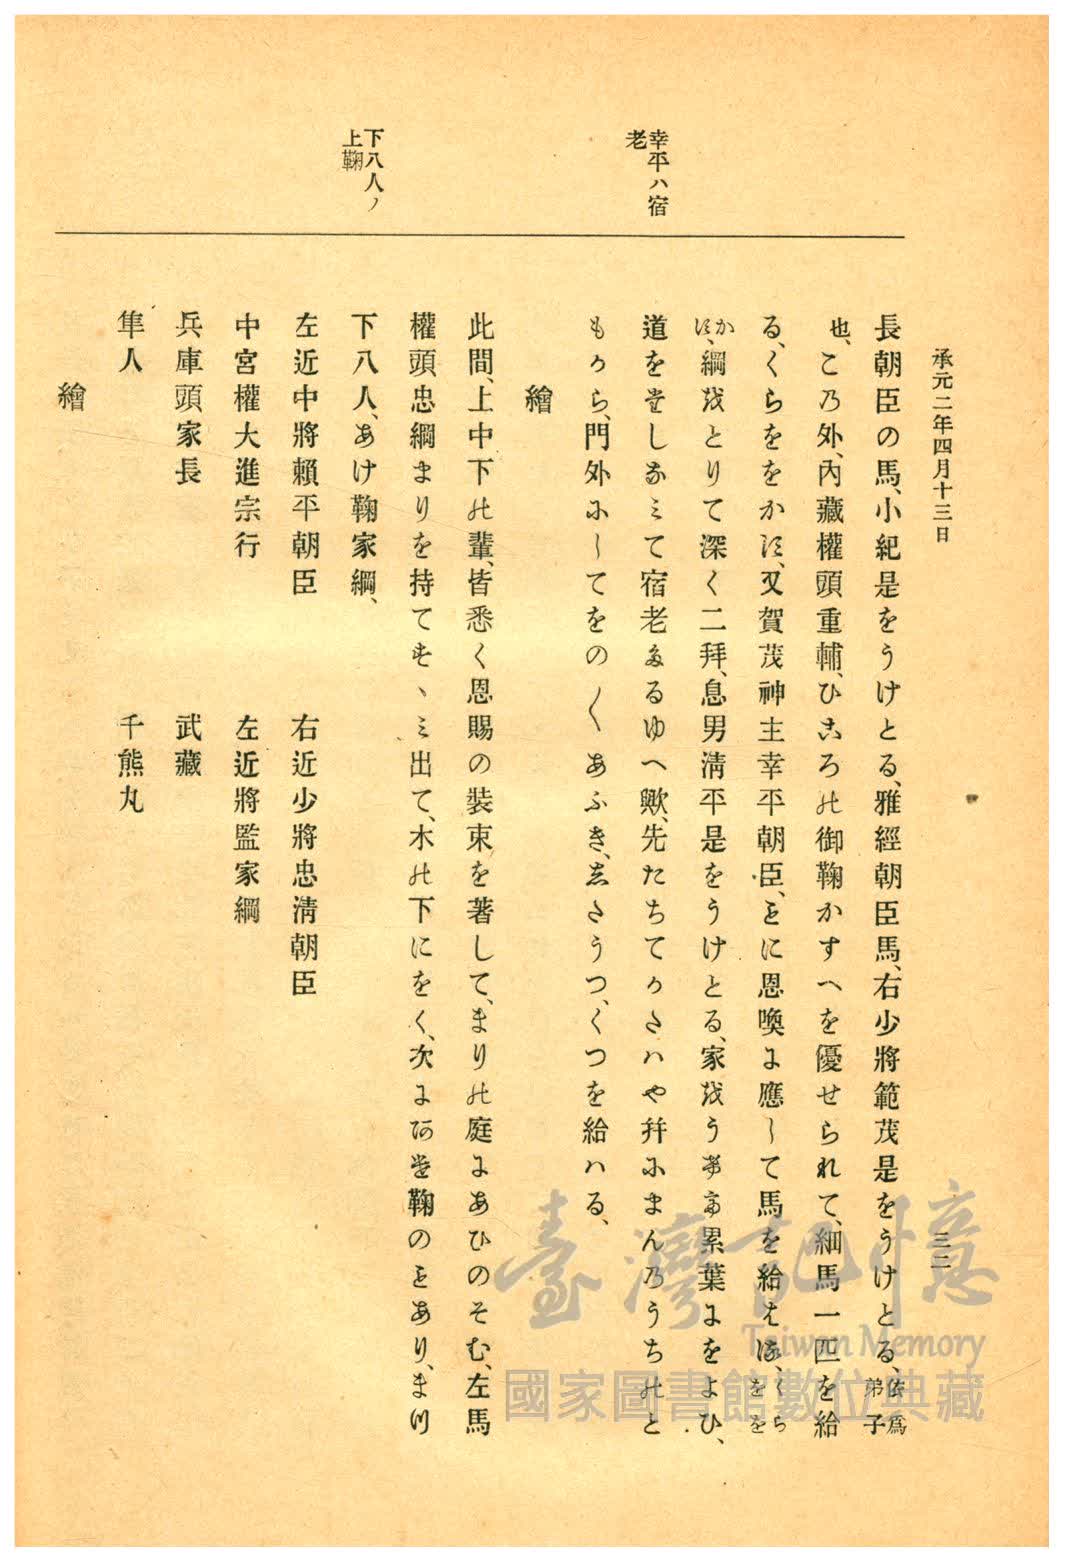 承元二年四月十三日
三二
幸平ハ宿
老
下八人ノ
上鞠
長朝臣の馬、小紀是をうけとる、雅經朝臣馬、右少將範茂是をうけとる、依爲弟子
也、この外、內藏權頭重輔、ひころの御鞠かすへを優せられて、細馬一匹を給
る、くらををかに、又賀茂神主幸平朝臣、とに恩喚に應して馬を給はる、くらをを
かに、綱をとりて深く二拜、息男淸平是をうけとる、家をうけて累葉にをよひ、
道をたしなみて宿老たるゆへ歟、先たちてかさハや幷にまんのうちのと
もから、門外にしてをの〱あふき、したうつ、くつを給ハる、
繪
此間、上中下の輩、皆悉く恩賜の裝束を著して、まりの庭にあひのそむ、左馬
權頭忠綱まりを持てすゝみ出て、木の下にをく、次にあけ鞠のとあり、まつ
下八人、あけ鞠家綱、
左近中將賴平朝臣 右近少將忠淸朝臣
中宮權大進宗行 左近將監家綱
兵庫頭家長 武藏
隼人 千熊丸
繪
臺灣記憶
Taiwan Memory
國家圖書館數位典藏